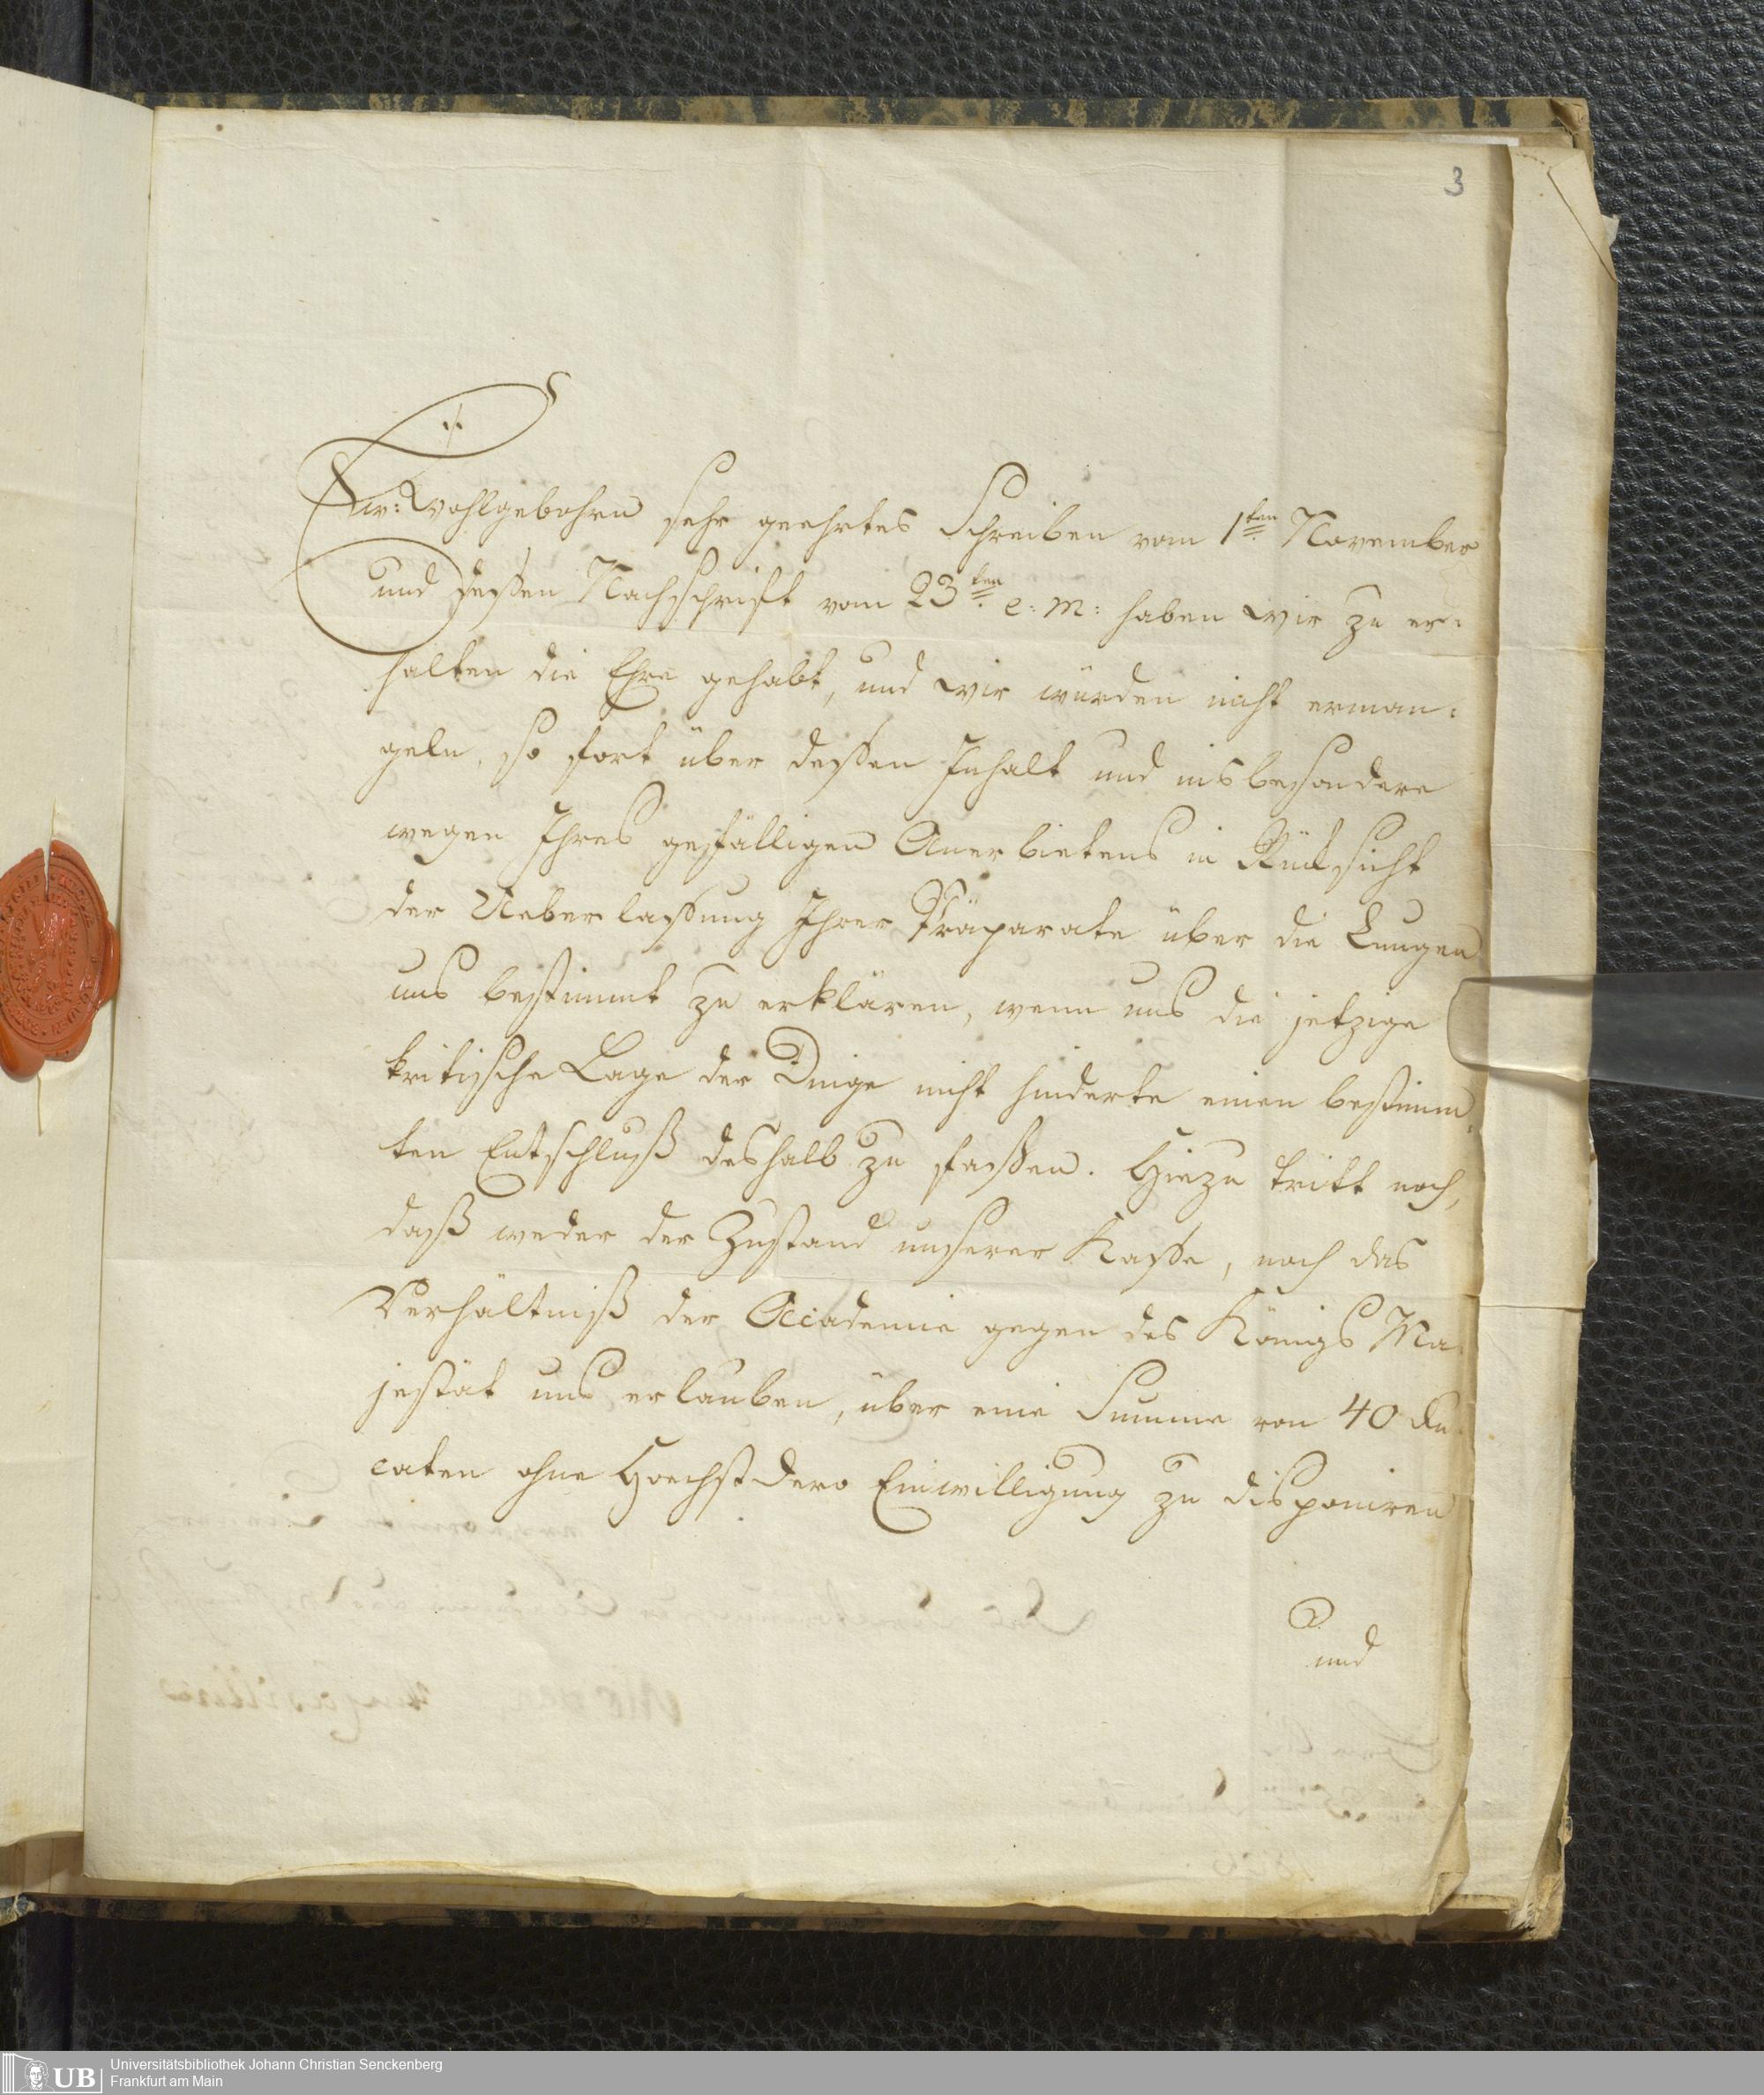 3
Ew: Wohlgebohren sehr geehrtes Schreiben vom 1ten November
und dessen Nachschrift vom 23ten e: m: haben wir zu er:
halten die Ehre gehabt, und wir würden nicht erman:
geln, so fort über dessen Inhalt und insbesondere
wegen Ihres gefälligen Anerbietens in Rücksicht
der Ueberlassung Ihrer Präparate über die Lungen
uns bestimmt zu erklären, wenn uns die jetzige
kritische Lage der Dinge nicht hinderte einen bestimm:
ten Entschluß deshalb zu fassen. Hiezu tritt noch,
daß weder der Zustand unserer Kasse, noch das
Verhältniß der Academie gegen des Königs Ma:
jestät uns erlauben, über eine Summe von 40 Du:
caten ohne Hoechst Dero Einwilligung zu disponiren
und
UB
Universitätsbibliothek Johann Christian Senckenberg
Frankfurt am Main